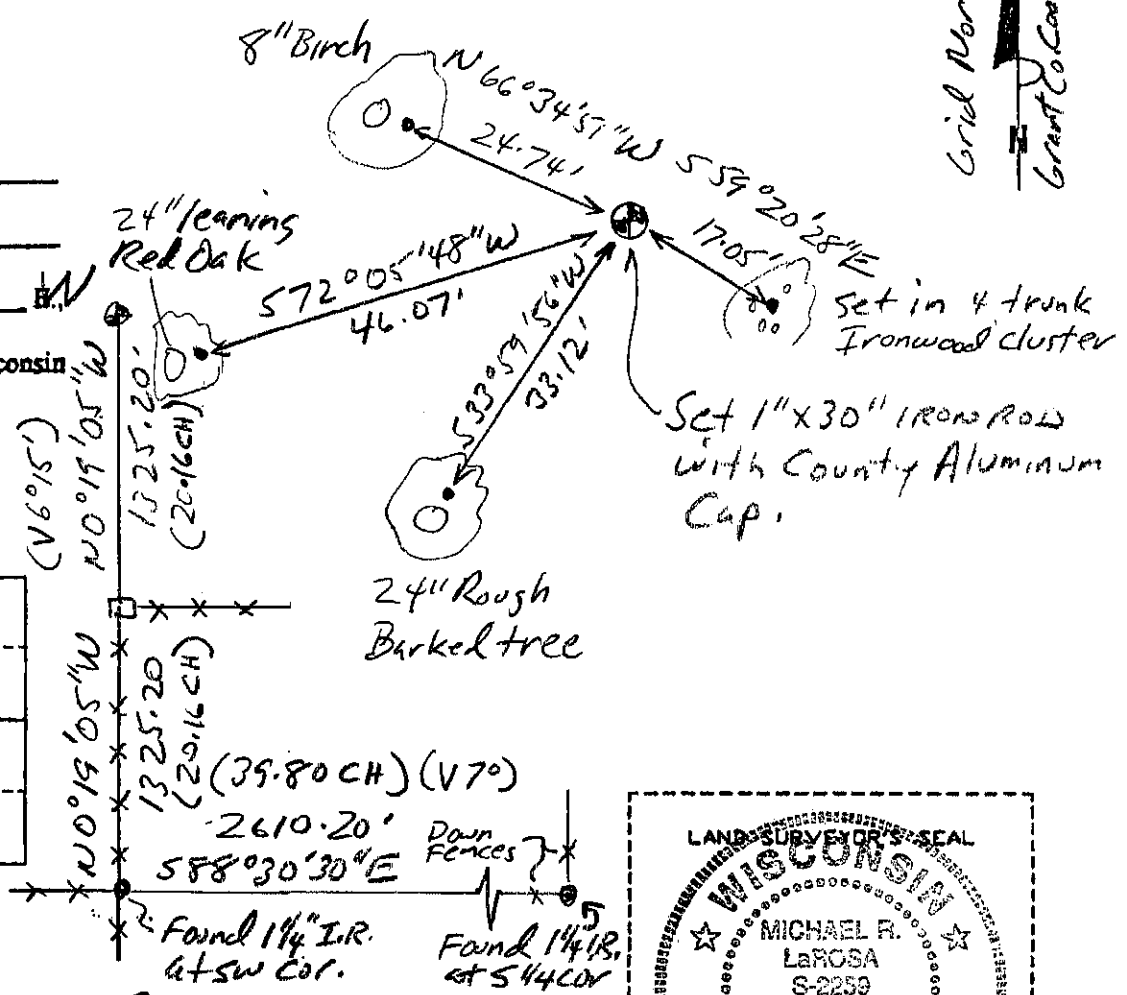 8" Birch
N 66°34'51" W
24.74'
S 59°20'28"E
17.05'
24" leaning
Red Oak
S72°05'48"W
46.07'
S33°59'56"W
33.12'
set in 4 trunk
Ironwood cluster
Set 1"X30" IRON ROW
with County Aluminum
Cap.
24" Rough
Barked tree
Grid Nor
Grant Co. Coo
N
W
consin
(V6°15')
N0°19'05"W
1325.20'
(20.16CH)
N0°19'05"W
1325.20
(20.16 CH)
(39.80 CH) (V7°)
2610.20'
S88°30'30"E
Down
Fences
Found 1¼" I.R.
at SW Cor.
Found 1¼ I.R.
at S 1/4 cor
LAND SURVEYOR'S SEAL
WISCONSIN
MICHAEL R.
LaROSA
S-2259